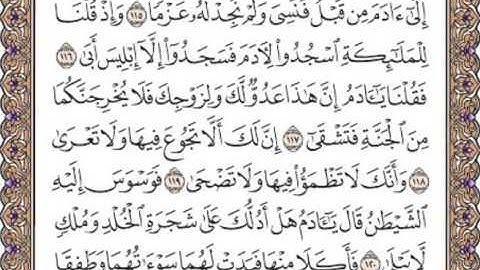 إِلَىٰٓ ءَادَمَ مِن قَبْلُ فَنَسِىَ وَلَمْ نَجِدْ لَهُۥ عَزْمًا ١١٥ وَإِذْ قُلْنَا
لِلْمَلَـٰٓئِكَةِ ٱسْجُدُوا۟ لِـَٔادَمَ فَسَجَدُوٓا۟ إِلَّآ إِبْلِيسَ أَبَىٰ ١١٦
فَقُلْنَا يَـٰٓـَٔادَمُ إِنَّ هَـٰذَا عَدُوٌّ لَّكَ وَلِزَوْجِكَ فَلَا يُخْرِجَنَّكُمَا
مِنَ ٱلْجَنَّةِ فَتَشْقَىٰٓ ١١٧ إِنَّ لَكَ أَلَّا تَجُوعَ فِيهَا وَلَا تَعْرَىٰ
١١٨ وَأَنَّكَ لَا تَظْمَؤُا۟ فِيهَا وَلَا تَضْحَىٰ ١١٩ فَوَسْوَسَ إِلَيْهِ
ٱلشَّيْطَـٰنُ قَالَ يَـٰٓـَٔادَمُ هَلْ أَدُلُّكَ عَلَىٰ شَجَرَةِ ٱلْخُلْدِ وَمُلْكٍ
لَّا يَبْلَىٰ ١٢٠ فَأَكَلَا مِنْهَا فَبَدَتْ لَهُمَا سَوْءَٰتُهُمَا وَطَفِقَا